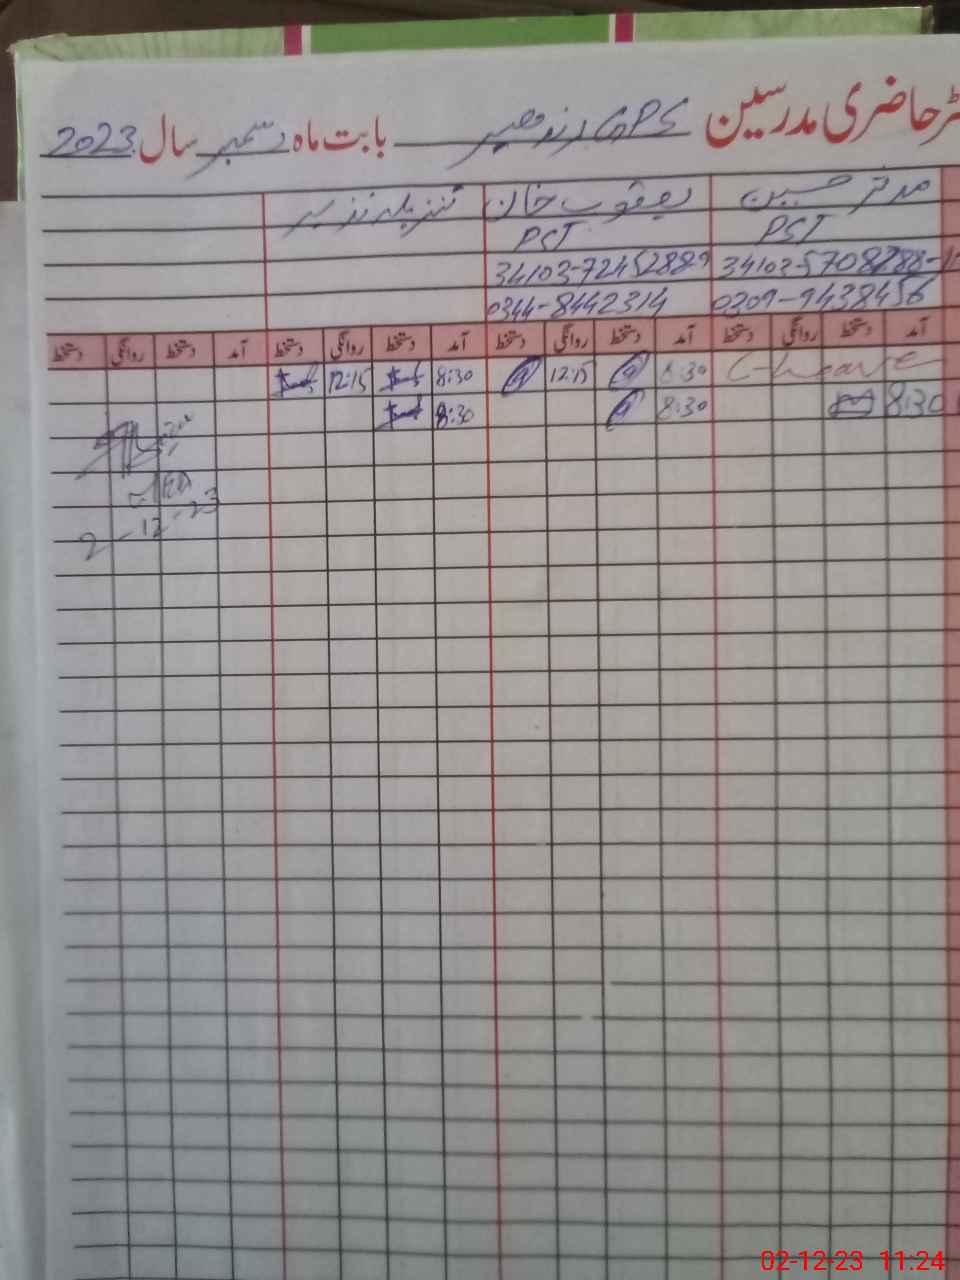 حاضری مدرسین GPS بابت ماہ دسمبر سال 2023
مدثر حسین یعقوب خان
PST PST
34103-5708288- 34103-7245288-9
0309-9438456 0344-8442314
آمد دستخط روانگی دستخط آمد دستخط روانگی دستخط آمد دستخط روانگی دستخط آمد دستخط روانگی دستخط
C-leave 8:30 12:15 8:30 12:15
8:30 8:30 8:30
2-12-23
02-12-23 11:24